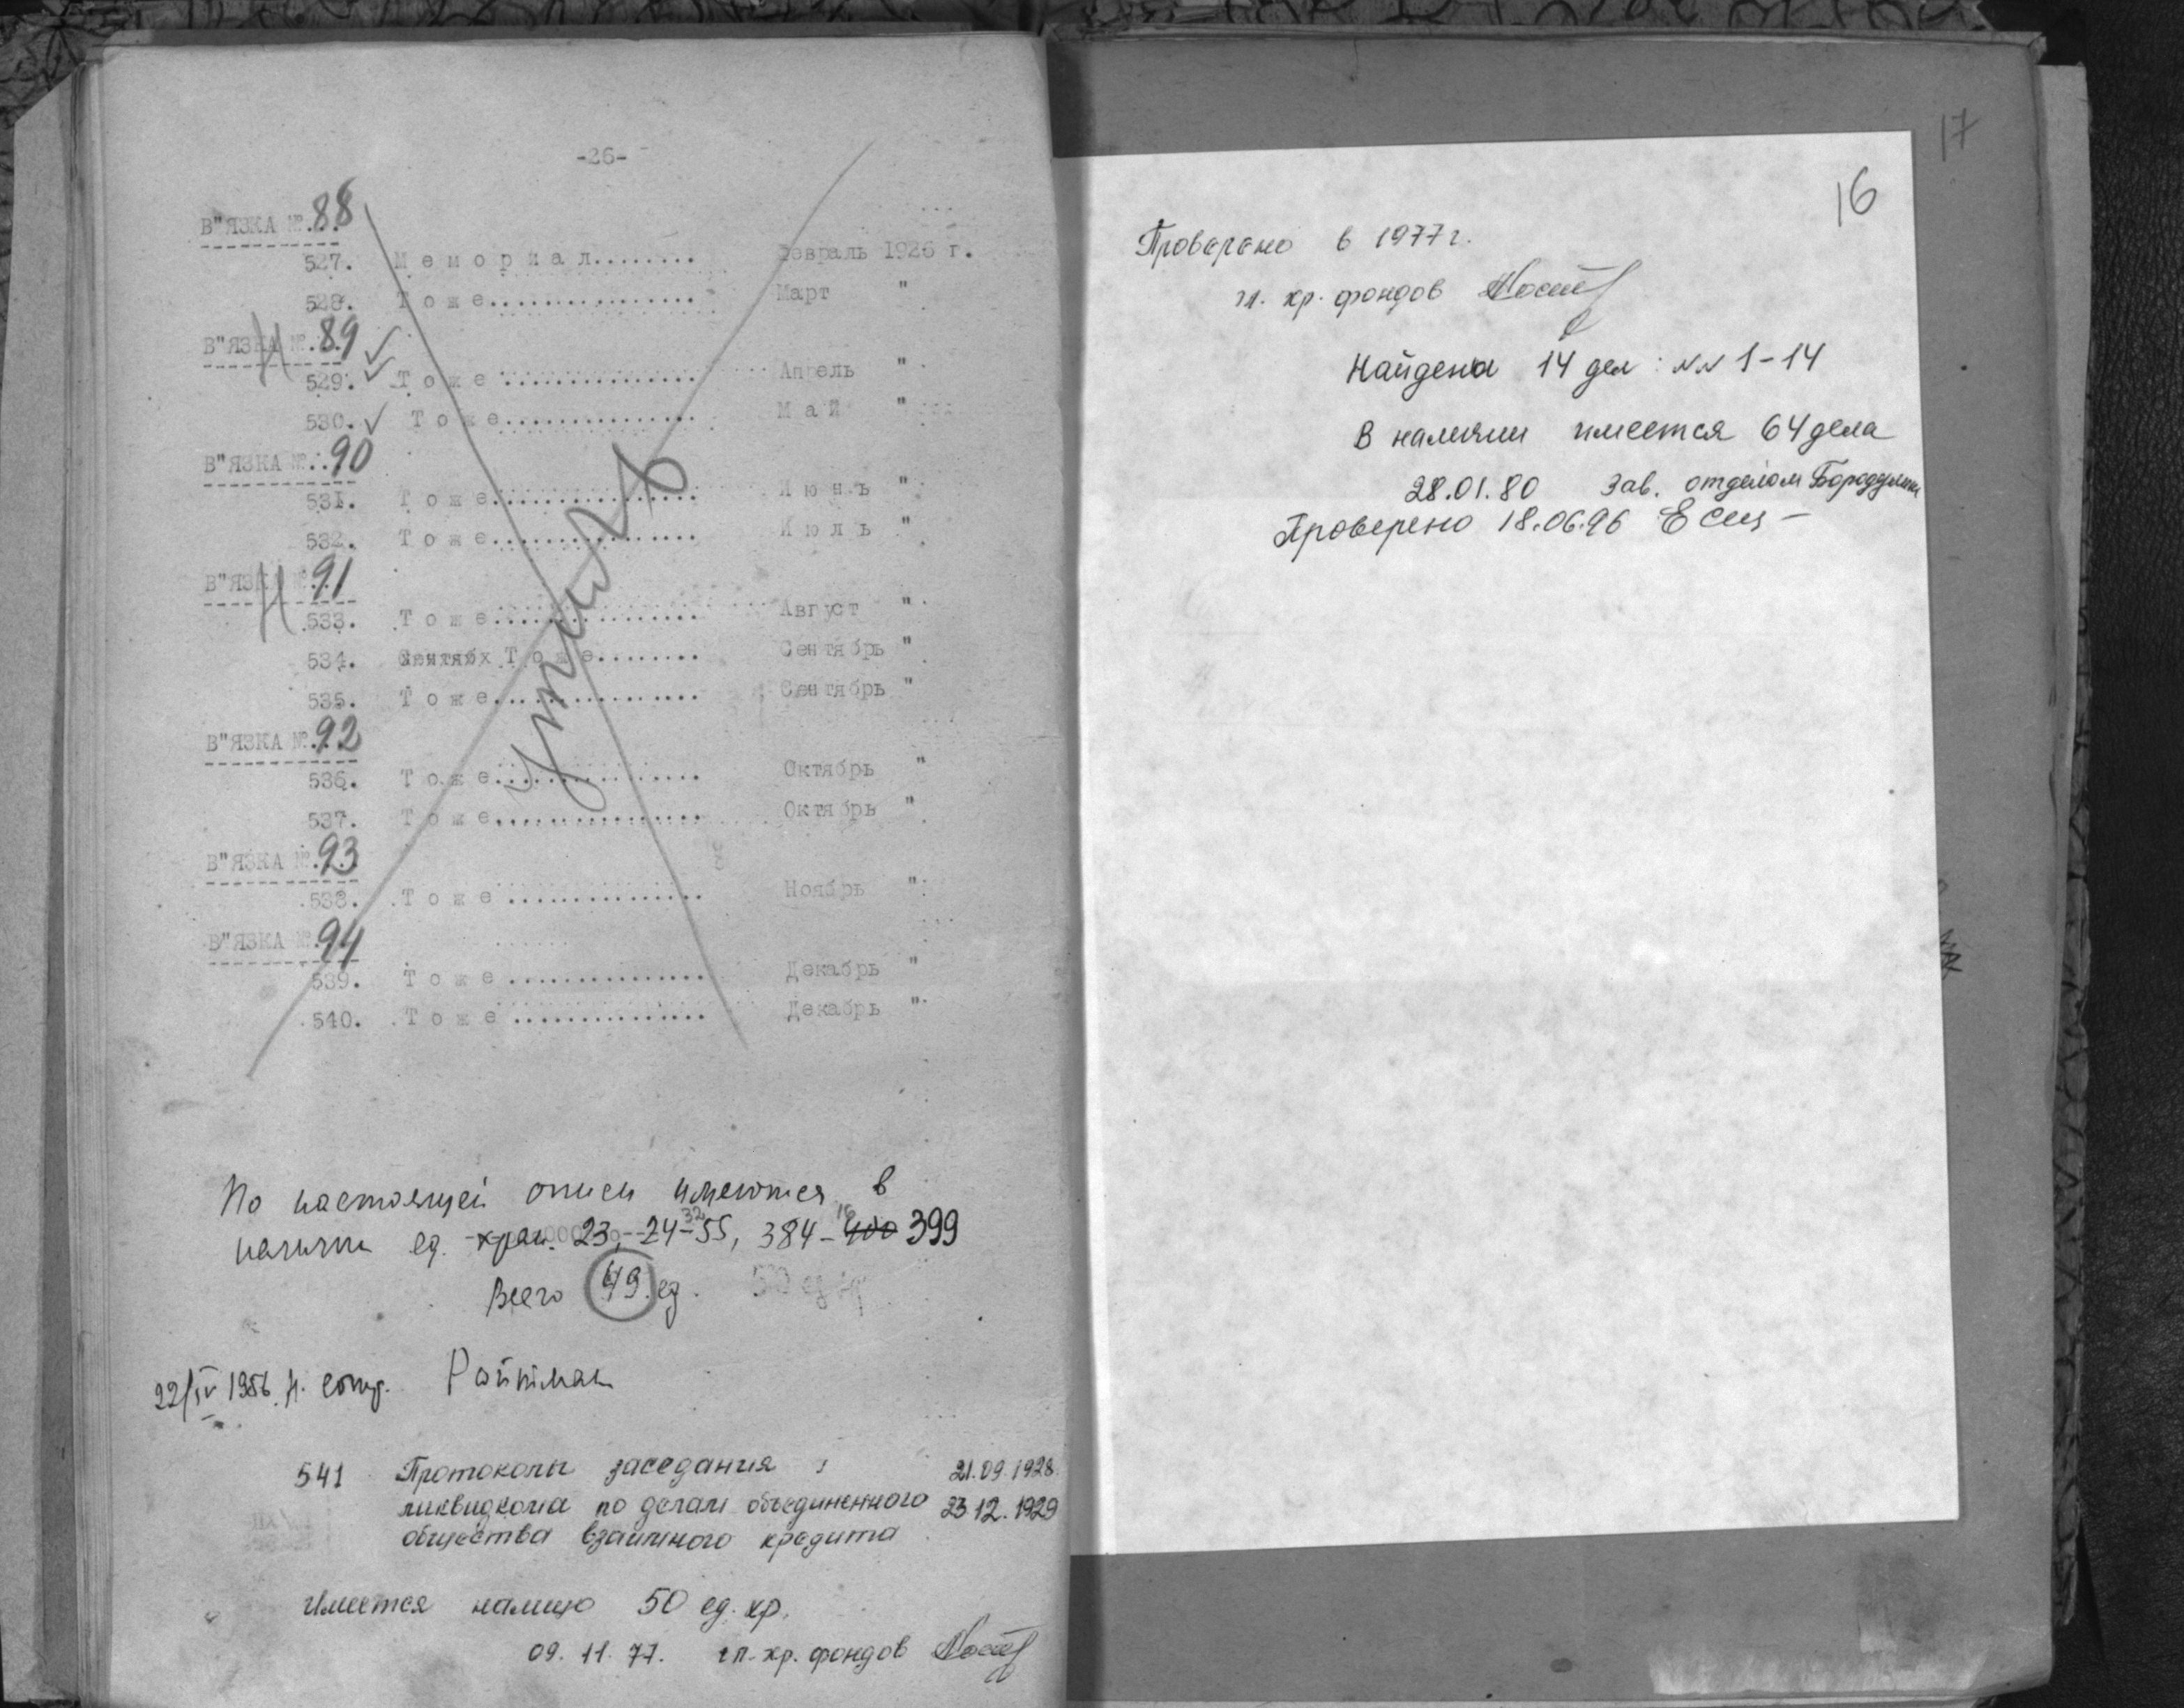 -26-
В"ЯЗКА №.88
527. Мемориал........ Февраль 1926 г.
528. Тоже................ Март "
В"ЯЗКА №.89 ✓
529. ✓ Тоже ................ Апрель "
530. ✓ Тоже................ Май "
В"ЯЗКА №.90
531. Тоже................ Июнь "
532. Тоже................ Июль "
В"ЯЗКА №.91
533. Тоже................ Август "
534. Тоже........ Сентябрь "
535. Тоже................ Сентябрь "
В"ЯЗКА №.92
536. Тоже................ Октябрь "
537. Тоже................ Октябрь "
В"ЯЗКА №.93
538. Тоже ................ Ноябрь "
В"ЯЗКА №.94
539. Тоже ................ Декабрь "
540. Тоже ................ Декабрь "
По настоящей описи имеются в
наличии ед. хран. 23, 24-55, 384-400 399
32 16
Всего 49 ед. 50 ед
22/IV 1956. Н. сотр. Ройтман
541 Протоколы заседания 21.09.1928
ликвидкома по делам объединенного 23 12.1929
общества взаимного кредита
Имеется налицо 50 ед. хр.
09.11.77. гл. хр. фондов
17
16
Проверено в 1977 г.
гл. хр. фондов
Найдена 14 дел: NN 1-14
В наличии имеется 64 дела
28.01.80 Зав. отделом
Проверено 18.06.96